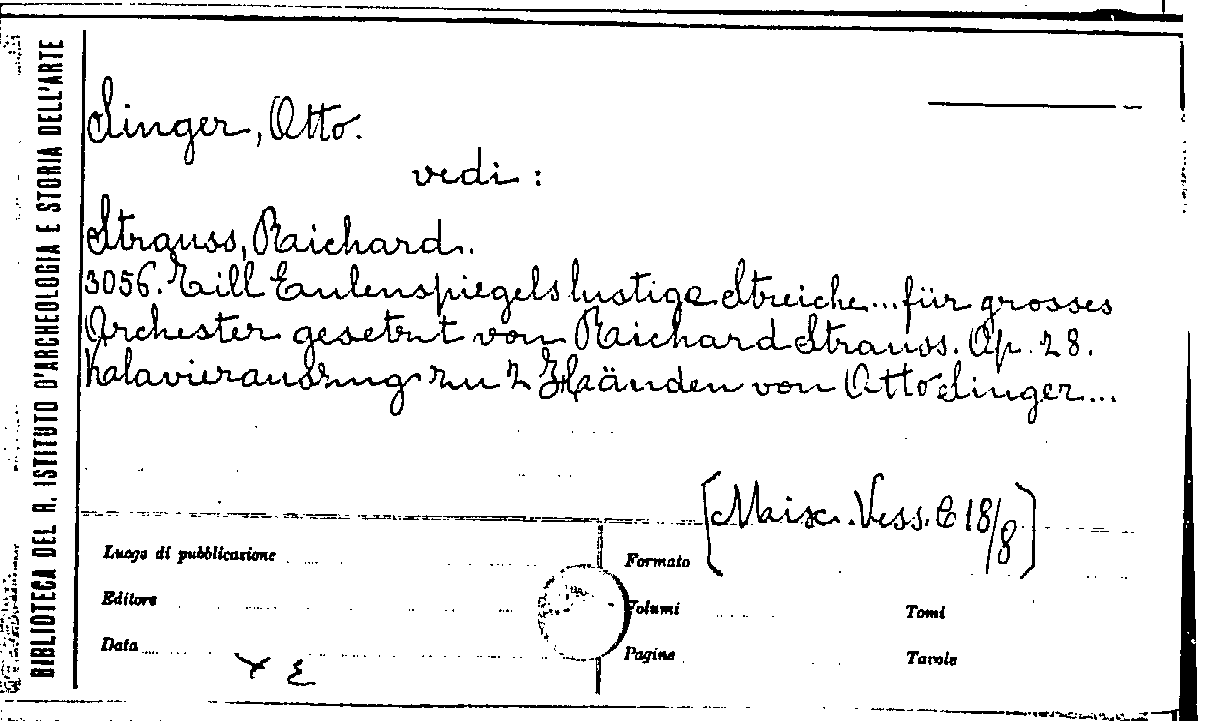 BIBLIOTECA DEL R. ISTITUTO D'ARCHEOLOGIA E STORIA DELL'ARTE
Singer, Otto.
vedi :
Strauss, Richard.
3056. Till Eulenspiegels lustige Streiche... für grosses
Orchester gesetzt von Richard Strauss. Op. 28.
Klavierauszug zu 2 Händen von Otto Singer...
[Misc. Vess. C 18/8]
Luogo di pubblicazione
Formato
Editore
Volumi
Tomi
Data
Pagine
Tavole